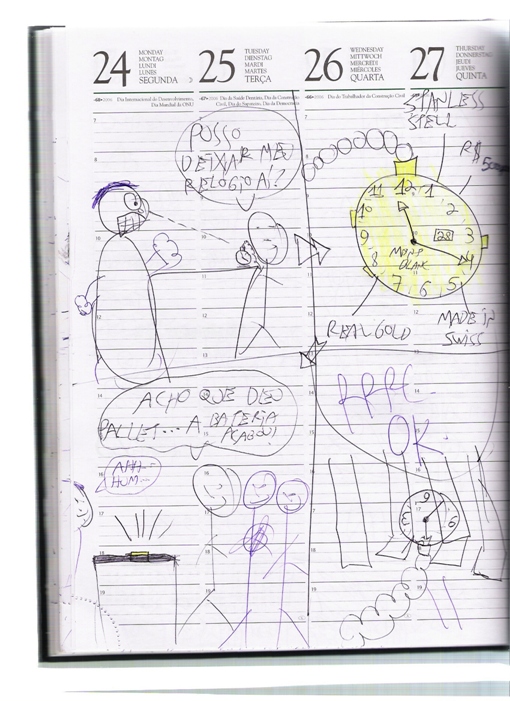 24
MONDAY
MONTAG
LUNDI
LUNES
SEGUNDA
25
TUESDAY
DIENSTAG
MARDI
MARTES
TERÇA
26
WEDNESDAY
MITTWOCH
MERCREDI
MIÉRCOLES
QUARTA
27
THURSDAY
DONNERSTAG
JEUDI
JUEVES
QUINTA
Dia Internacional do Desenvolvimento,
Dia Mundial da ONU
Dia do Trabalhador da Construção Civil
POSSO
DEIXAR MEU
RELÓGIO AÍ?
STANLESS
STELL
R$
11 12 1
10 2
9 28 3
8 4
7 6 5
MONT
BLANC
REAL GOLD
MADE IN
SWISS
ACHO QUE DEU
PALLET... A BATERIA
ACABOU!
AHH...
HUM...
OK.